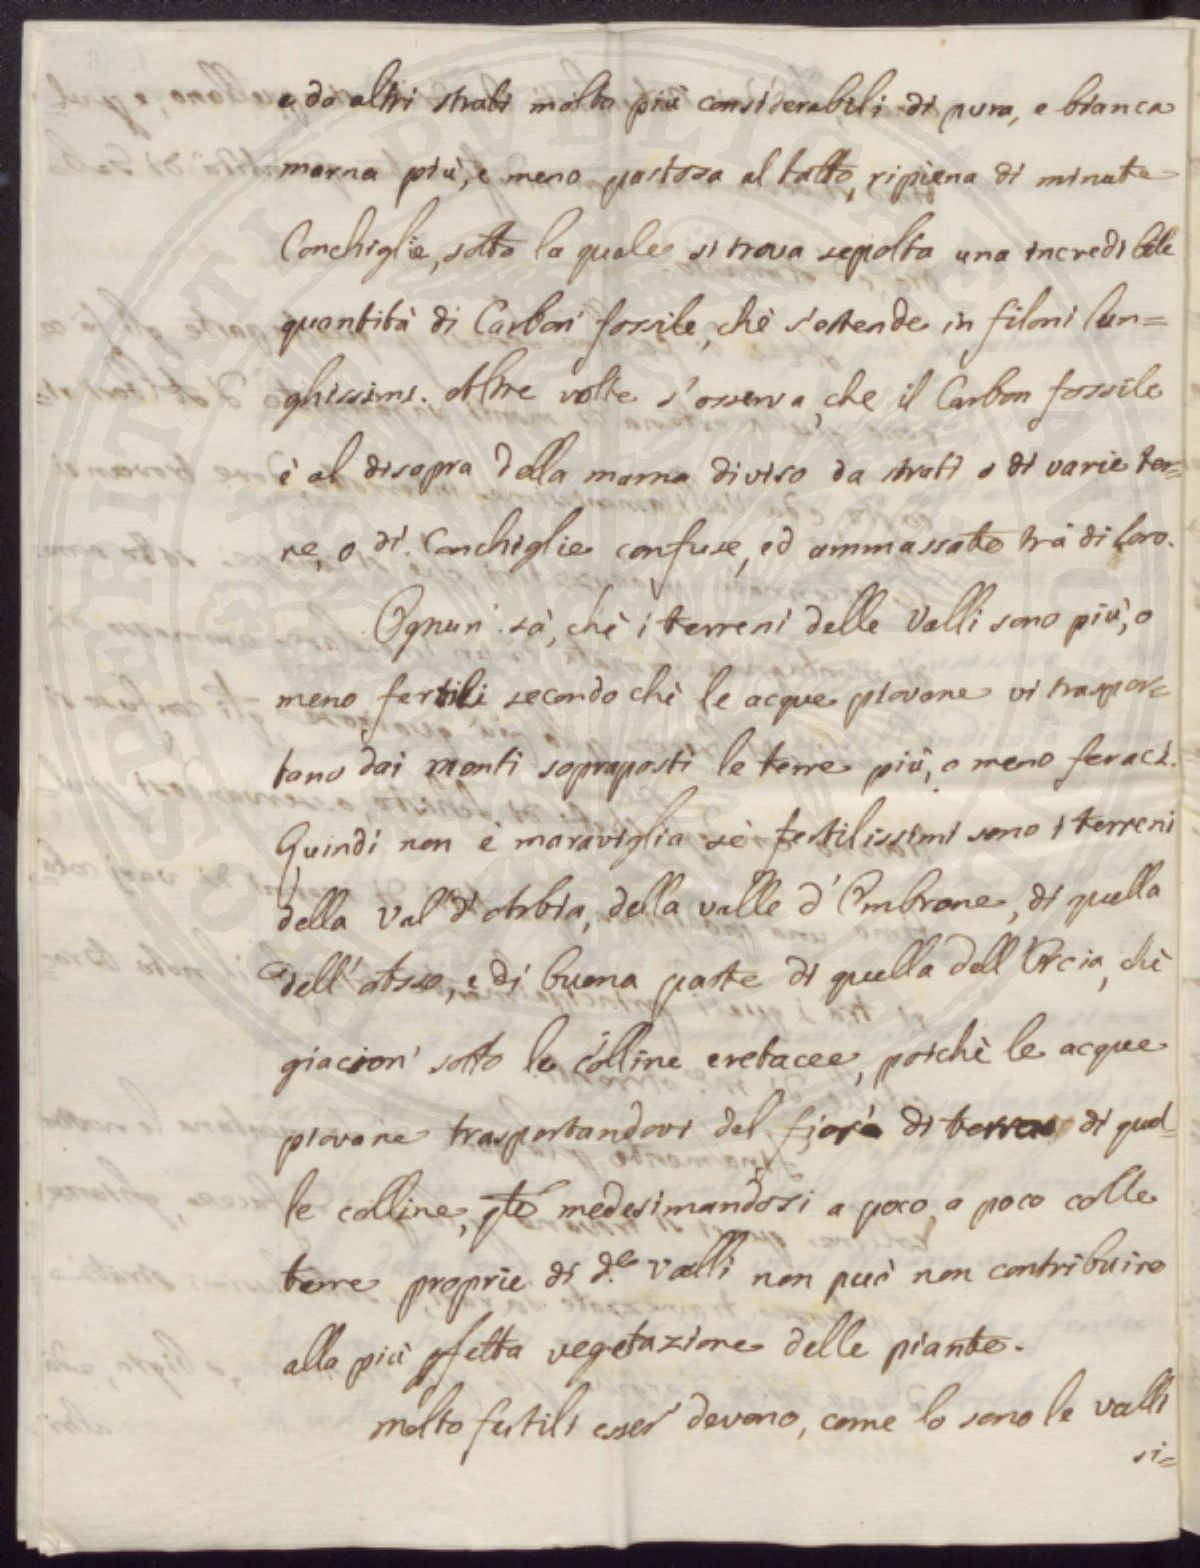 e da altri strati molto più considerabili di pura, e bianca
marna più, e meno pastosa al tatto, ripiena di minute
Conchiglie, sotto la quale si trova sepolta una incredibile
quantità di Carbon fossile, chè s'estende in filoni lun=
ghissimi. Altre volte s'osserva, che il Carbon fossile
è al disopra della marna diviso da strati o di varie ter=
re, o di Conchiglie confuse, ed ammassate trà di loro.
Ognun sà, chè i terreni delle Valli sono più, o
meno fertili secondo chè le acque piovane vi traspor=
tano dai monti sopraposti le terre più, o meno feraci.
Quindi non è maraviglia sè fertilissimi sono i terreni
della Val' d'Arbia, della valle d'Ombrone, di quella
dell'Asso, e di buona parte di quella dell'Orcia, chè
giacion' sotto le Colline cretacee, poichè le acque
piovane trasportandovi del fiore di terra di quel=
le colline, qte medesimandosi a poco, a poco colle
terre proprie di d.e Valli non può non contribuire
alla più pfetta vegetazione delle piante.
Molto fertili esser devono, come lo sono le valli
si=
PUBLICA
PROSPERITATI